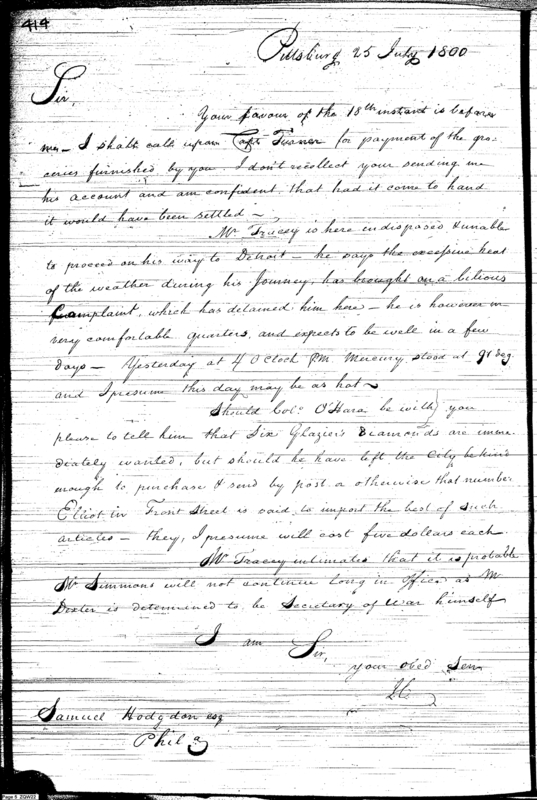 414
Pittsburg 25 July 1800
Sir,
Your favour of the 18th instant is before
me – I shall call upon Capt. Turner for payment of the gro-
ceries furnished by you. I don't recollect your sending me
his account and am confident, that had it come to hand
it would have been settled –
Mr Tracey is here indisposed & unable
to proceed on his way to Detroit – he says the excessive heat
of the weather during his Journey, has brought on a bilious
Complaint, which has detained him here – he is however in
very comfortable quarters, and expects to be well in a few
days – Yesterday at 4 O'Clock PM. Mercury stood at 91 deg.
and I presume this day may be as hot –
Should Colo. O'Hara be with you
please to tell him that Six Glazier's Diamonds are imme-
diately wanted, but should he have left the City be kind
enough to purchase & send by post or otherwise that number
Elliot in Front Street is said to import the best of such
articles – they, I presume will cost five dollars each
Mr Tracey intimates that it is probable
Mr Simmons will not continue long in office as Mr
Dexter is determined to be Secretary of War himself
I am Sir,
your obed Serv
Samuel Hodgdon esq
Phila